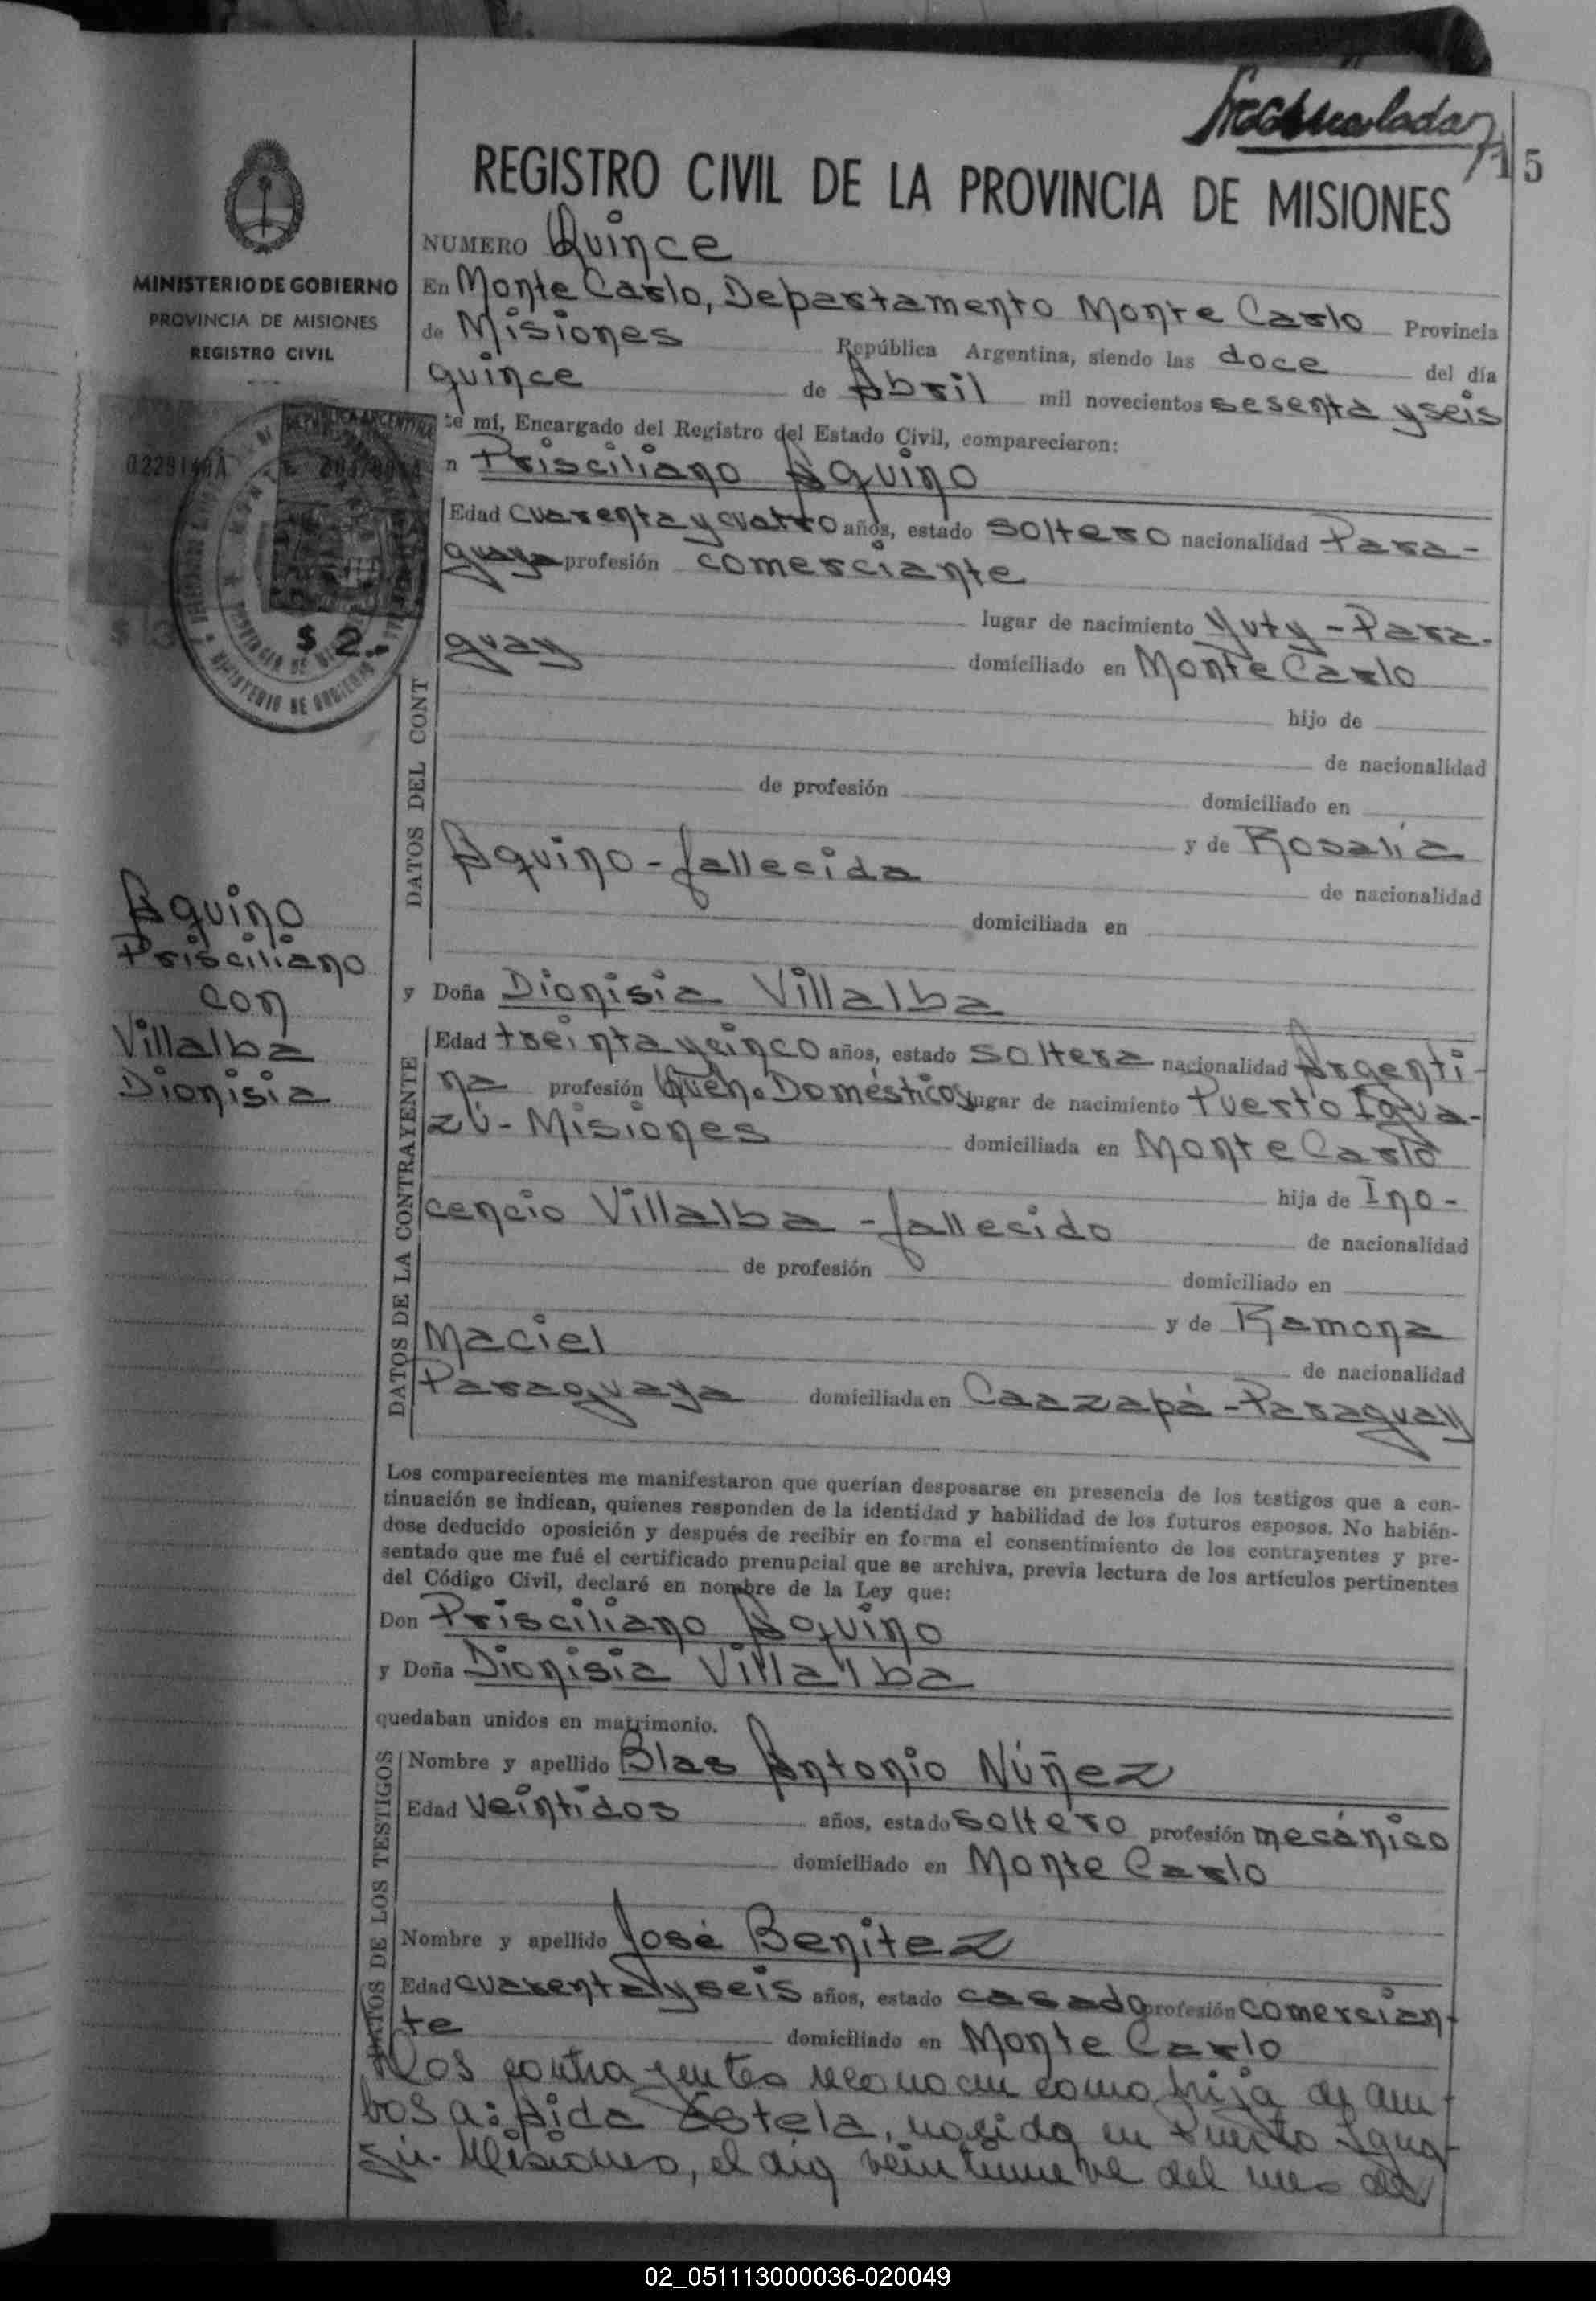 15
REGISTRO CIVIL DE LA PROVINCIA DE MISIONES
MINISTERIO DE GOBIERNO
PROVINCIA DE MISIONES
REGISTRO CIVIL
NUMERO Quince
En Monte Carlo, Departamento Monte Carlo Provincia
de Misiones República Argentina, siendo las doce del día
quince de Abril mil novecientos sesenta y seis
te mí, Encargado del Registro del Estado Civil, comparecieron:
n Prisciliano Aquino
$ 2.-
Edad cuarenta y cuatro años, estado soltero nacionalidad Para-
guaya profesión comerciante
lugar de nacimiento Yuty - Para-
guay domiciliado en Monte Carlo
DATOS DEL CONT
hijo de
de nacionalidad
de profesión domiciliado en
y de Rosalía
Aquino - fallecida de nacionalidad
domiciliada en
Aquino
Prisciliano
con
Villalba
Dionisia
y Doña Dionisia Villalba
DATOS DE LA CONTRAYENTE
Edad treinta y cinco años, estado soltera nacionalidad Argenti-
na profesión Queh. Domésticos lugar de nacimiento Puerto Igua-
zú - Misiones domiciliada en Monte Carlo
hija de Ino-
cencio Villalba - fallecido de nacionalidad
de profesión domiciliado en
y de Ramona
Maciel de nacionalidad
Paraguaya domiciliada en Caazapá - Paraguay
Los comparecientes me manifestaron que querían desposarse en presencia de los testigos que a con-
tinuación se indican, quienes responden de la identidad y habilidad de los futuros esposos. No habién-
dose deducido oposición y después de recibir en forma el consentimiento de los contrayentes y pre-
sentado que me fué el certificado prenupcial que se archiva, previa lectura de los artículos pertinentes
del Código Civil, declaré en nombre de la Ley que:
Don Prisciliano Aquino
y Doña Dionisia Villalba
quedaban unidos en matrimonio.
DATOS DE LOS TESTIGOS
Nombre y apellido Blas Antonio Núñez
Edad veintidos años, estado soltero profesión mecánico
domiciliado en Monte Carlo
Nombre y apellido José Benitez
Edad cuarenta y seis años, estado casado profesión comercian-
te domiciliado en Monte Carlo
Los contrayentes reconocen como hija de am-
bos a: Aida Estela, nacida en Puerto Igua-
zú - Misiones, el día veintinueve del mes de
02_051113000036-020049